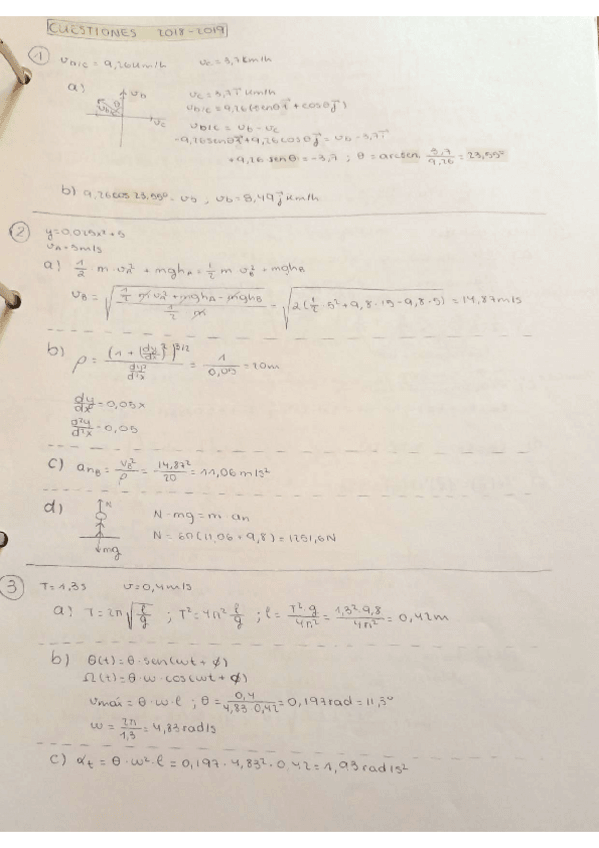 CUESTIONES 2018-2019
1
v_b/c = 9,26 km/h v_c = 3,7 km/h
a) v_b v_b/c θ v_c
v_c = 3,7 i km/h
v_b/c = 9,26 (senθ i + cosθ j)
v_b/c = v_b - v_c
-9,26senθ i + 9,26cosθ j = v_b - 3,7 i
+9,26 senθ = -3,7 ; θ = arcsen 3,7/9,26 = 23,55º
b) 9,26cos 23,55º = v_b , v_b = 8,49 j km/h
2
y=0,025x²+5
v_A=5m/s
a) 1/2 · m · v_A² + mgh_A = 1/2 m v_B² + mgh_B
v_B = √((1/2 m v_A² + mgh_A - mgh_B)/(1/2 m)) = √(2(1/2 · 5² + 9,8 · 15 - 9,8 · 5)) = 14,87m/s
b) ρ = (1 + (dy/dx)²)^3/2 / (d²y/d²x) = 1/0,05 = 20m
dy/dx = 0,05x
d²y/d²x = 0,05
c) an_B = v_B²/ρ = 14,87²/20 = 11,06 m/s²
d) N mg
N - mg = m · an
N = 60(11,06 + 9,8) = 1251,6N
3
T=1,3s v=0,4m/s
a) T = 2π√(l/g) ; T² = 4π² l/g ; l = T²·g/4π² = 1,3²·9,8/4π² = 0,42m
b) θ(t) = θ · sen(wt + ϕ)
Ω(t) = θ · w · cos(wt + ϕ)
vmáx = θ · w · l ; θ = 0,4/4,83·0,42 = 0,197 rad = 11,3º
w = 2π/1,3 = 4,83 rad/s
c) α_t = θ · w² · l = 0,197 · 4,83² · 0,42 = 1,93 rad/s²